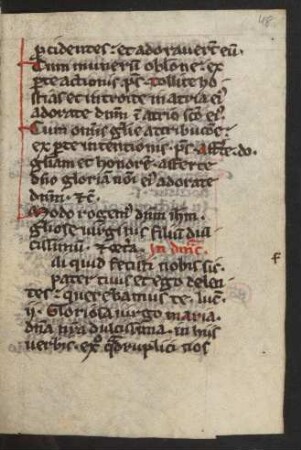 48
procidentes · et adoraverūt eū ·
Cum munerū oblone · ex
pte actionis · ps · Tollite ho
stias et introite in atria eī
adorate dnm ī atrio scō eī
Cum omīs glie attributōe
ex pte intentionis · ps · affte · do ·
gliam et honorē · afferte
dno gloriam noī eī adorate
dnm · ⁊c̄
Modo rogemꝰ dnm ihm ·
gliose virginis filiū dul
cissimū · ⁊ cetā · In dnic̄ ·
ili quid fecisti nobis sic
pater tuus et ego dolen
tes · querebamus te · luc̄ ·
ii · Gloriosa virgo maria ·
dna nra dulcissima · in hiis
verbis · ex qdruplici nos
f